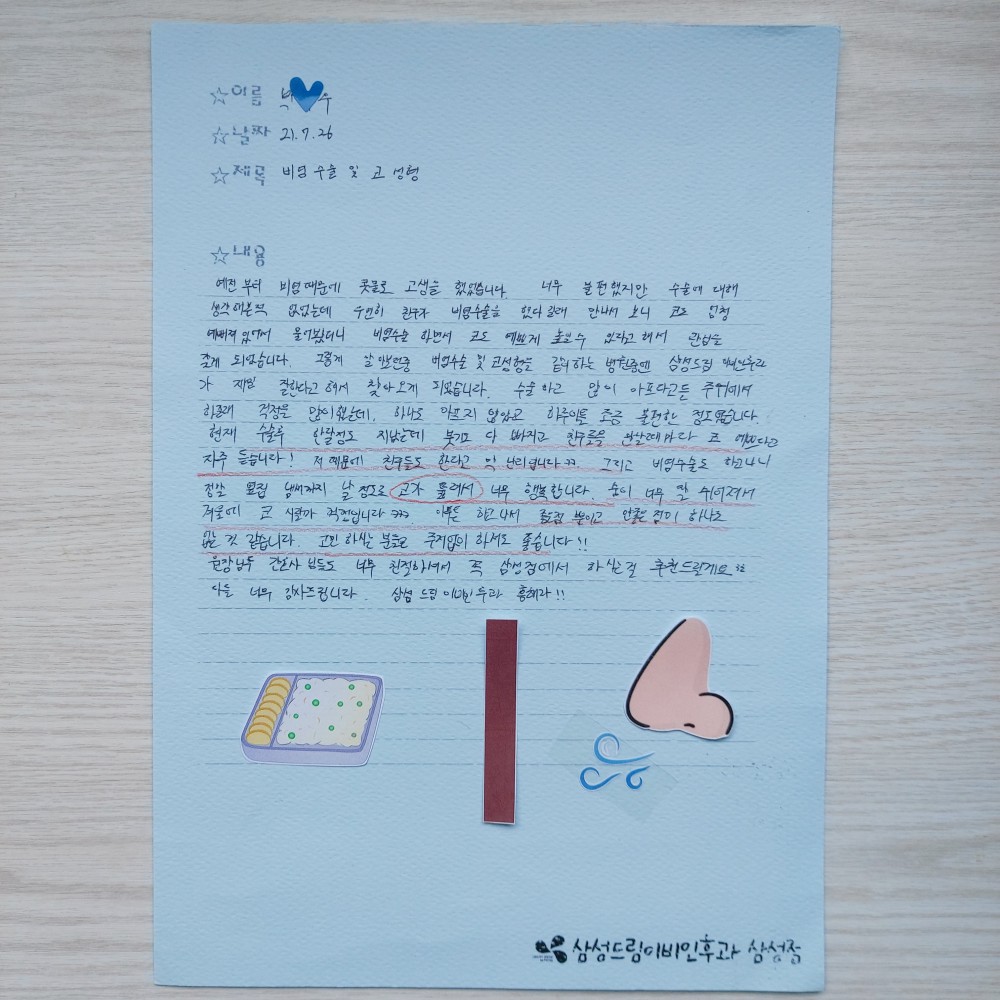 ☆이름 박 우
☆날짜 21.7.26
☆제목 비염 수술 및 코 성형
☆내용
예전부터 비염때문에 콧물로 고생을 했었습니다. 너무 불편했지만 수술에 대해
생각해본적 없었는데 우연히 친구가 비염수술을 했다길래 만나서 보니 코도 엄청
예뻐져 있어서 물어봤더니 비염수술 하면서 코도 예쁘게 높일수 있다고 해서 관심을
갖게 되었습니다. 그렇게 알아보던중 비염수술 및 코성형을 같이하는 병원중엔 삼성드림이비인후과
가 제일 잘한다고 해서 찾아오게 되었습니다. 수술하고 많이 아프다고들 주위에서
하길래 걱정을 많이 했는데, 하나도 아프지 않았고 하루이틀 조금 불편한 정도였습니다.
현재 수술후 한달정도 지났는데 붓기도 다 빠지고 친구들을 만날때마다 코 예쁘다고
자주 듣습니다! 저 때문에 친구들도 한다고 막 난리입니다ㅋㅋ. 그리고 비염수술도 하고나니
정말 옆집 냄새까지 날 정도로 코가 뚫려서 너무 행복합니다. 숨이 너무 잘 쉬어져서
겨울에 코 시릴까 걱정입니다ㅋㅋㅋ. 아무튼 하고나서 좋은점 뿐이고 안좋은 점이 하나도
없는 것 같습니다. 고민 하시는 분들은 주저없이 하셔도 좋습니다!!
원장님두 간호사 님들도 너무 친절하셔서 꼭 삼성점에서 하시는걸 추천드릴게요
다들 너무 감사드립니다. 삼성 드림 이비인후과 흥해라!!
삼성드림이비인후과 삼성점